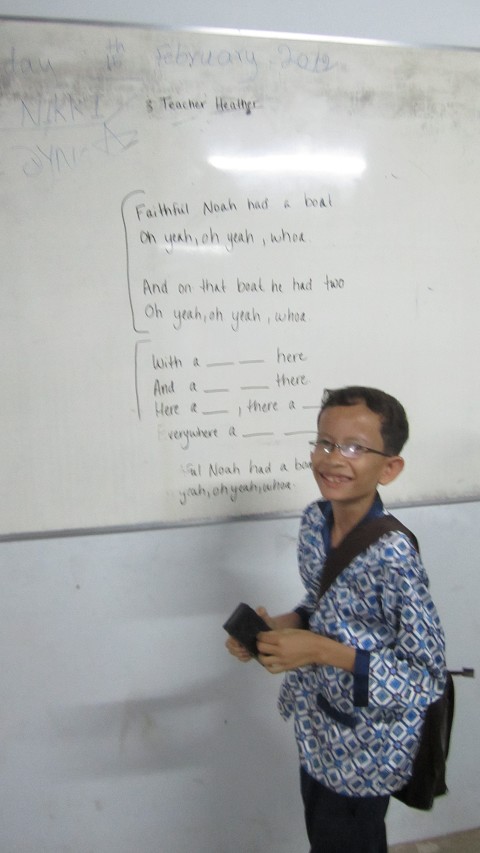 day th February 2012
NIKKI
& Teacher Heather
Faithful Noah had a boat
Oh yeah, oh yeah, whoa.
And on that boat he had two
Oh yeah, oh yeah, whoa.
With a __ __ here
And a __ __ there
Here a __, there a __
Everywhere a __ __
ful Noah had a boa
yeah, oh yeah, whoa.